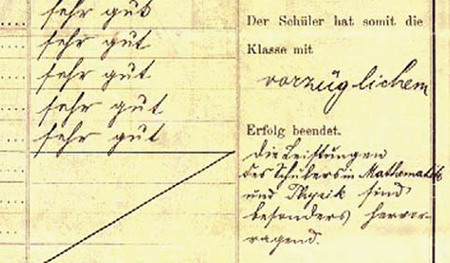 sehr gut
sehr gut
sehr gut
sehr gut
sehr gut
Der Schüler hat somit die
Klasse mit
vorzüglichem
Erfolg beendet.
Die Leistungen
des Schülers in Mathematik
und Physik sind
besonders hervor-
ragend.